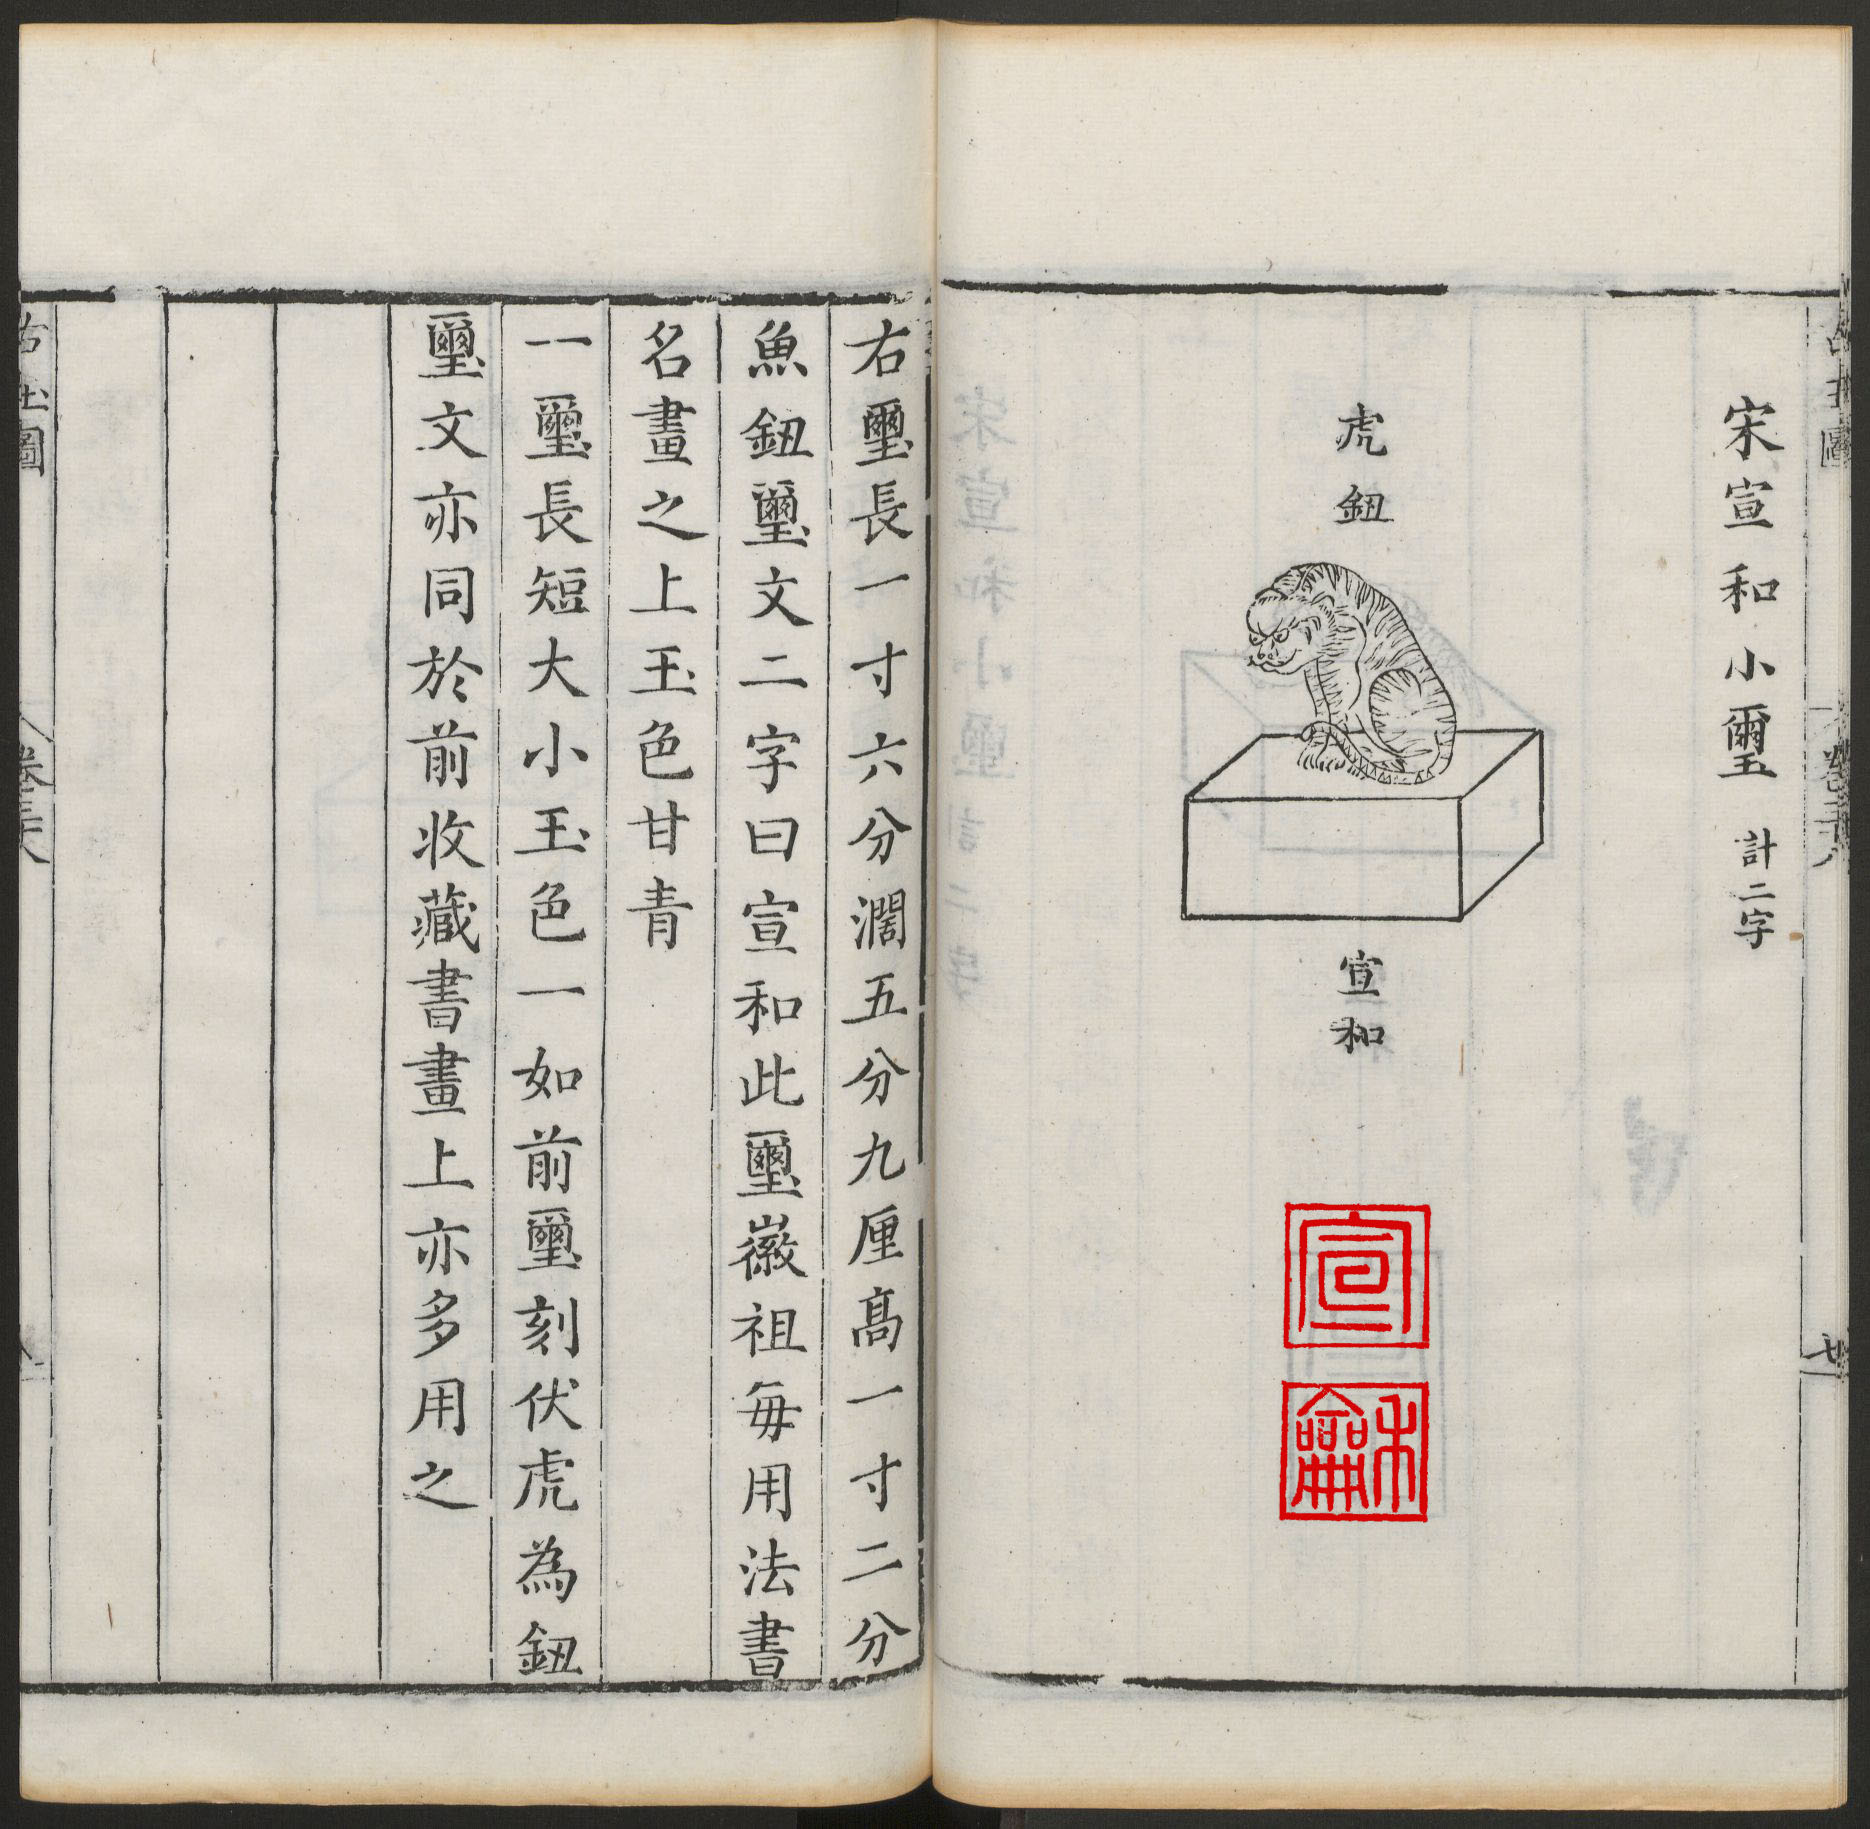 宋宣和小璽 計二字
虎鈕
宣和
宣
龢
右璽長一寸六分濶五分九厘高一寸二分
魚鈕璽文二字曰宣和此璽徽祖每用法書
名畫之上玉色甘青
一璽長短大小玉色一如前璽刻伏虎為鈕
璽文亦同於前收藏書畫上亦多用之